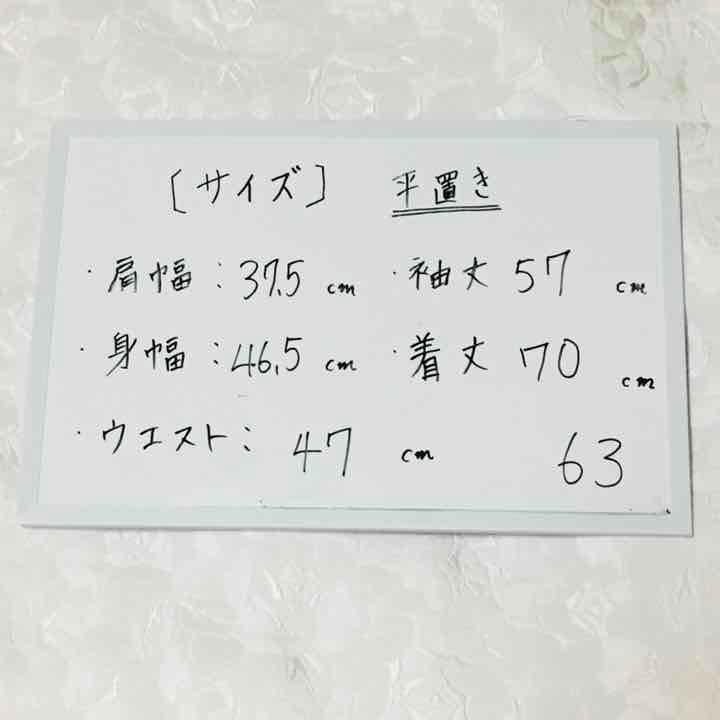 [サイズ] 平置き
・肩幅：37.5 cm ・袖丈 57 cm
・身幅：46.5 cm ・着丈 70 cm
・ウエスト： 47 cm 63